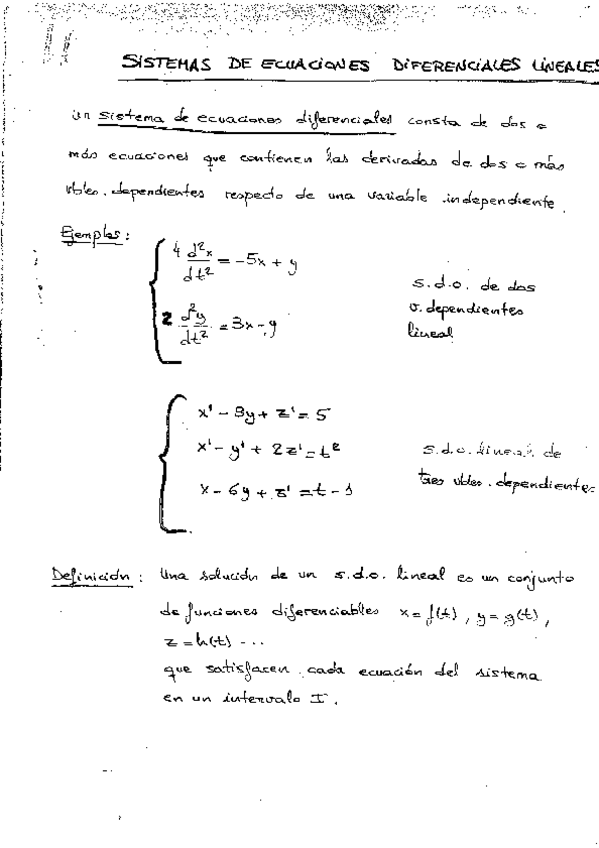 SISTEMAS DE ECUACIONES DIFERENCIALES LINEALES
Un sistema de ecuaciones diferenciales consta de dos o
más ecuaciones que contienen las derivadas de dos o más
vbles. dependientes respecto de una variable independiente.
Ejemplos:
4 d²x/dt² = -5x + y
2 d²y/dt² = 3x - y
s.d.o. de dos
v. dependientes
lineal
x' - 3y + z' = 5
x' - y' + 2z' = t²
x - 6y + z' = t - 1
s.d.o. lineal de
tres vbles. dependientes
Definición: Una solución de un s.d.o. lineal es un conjunto
de funciones diferenciables x = f(t), y = g(t),
z = h(t) ...
que satisfacen cada ecuación del sistema
en un intervalo I.